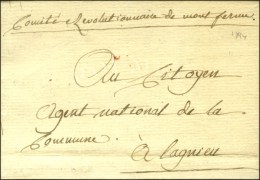 Comité Revolutionnaire de mont ferme.
1794
Au Citoyen
agent national de la
Commune
à lagnieu